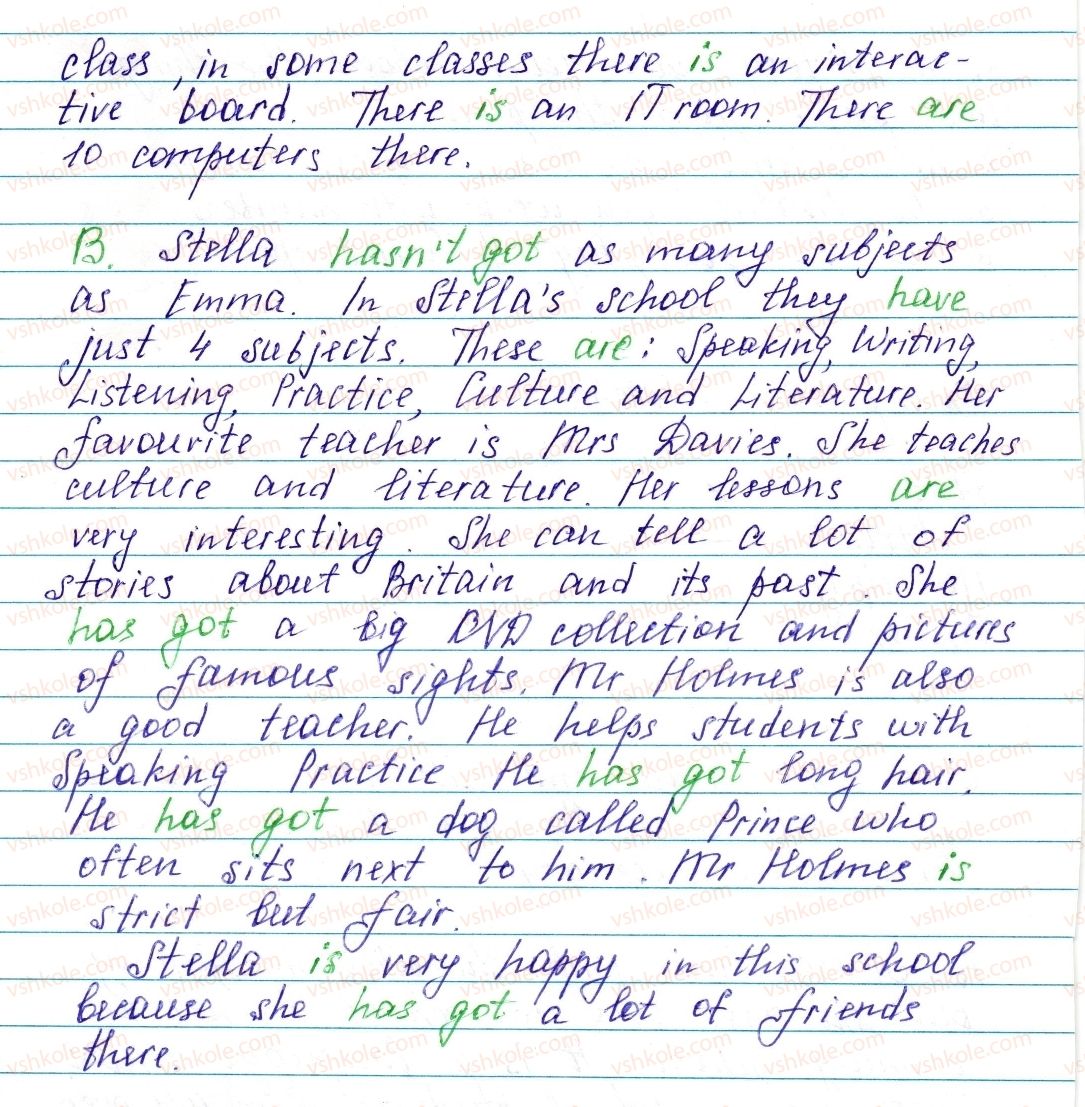 class, in some classes there is an interac-
tive board. There is an IT room. There are
10 computers there.
B. Stella hasn't got as many subjects
as Emma. In Stella's school they have
just 4 subjects. These are: Speaking, Writing,
Listening, Practice, Culture and Literature. Her
favourite teacher is Mrs Davies. She teaches
culture and literature. Her lessons are
very interesting. She can tell a lot of
stories about Britain and its past. She
has got a big DVD collection and pictures
of famous sights. Mr Holmes is also
a good teacher. He helps students with
Speaking Practice He has got long hair.
He has got a dog called Prince who
often sits next to him. Mr Holmes is
strict but fair.
Stella is very happy in this school
because she has got a lot of friends
there.